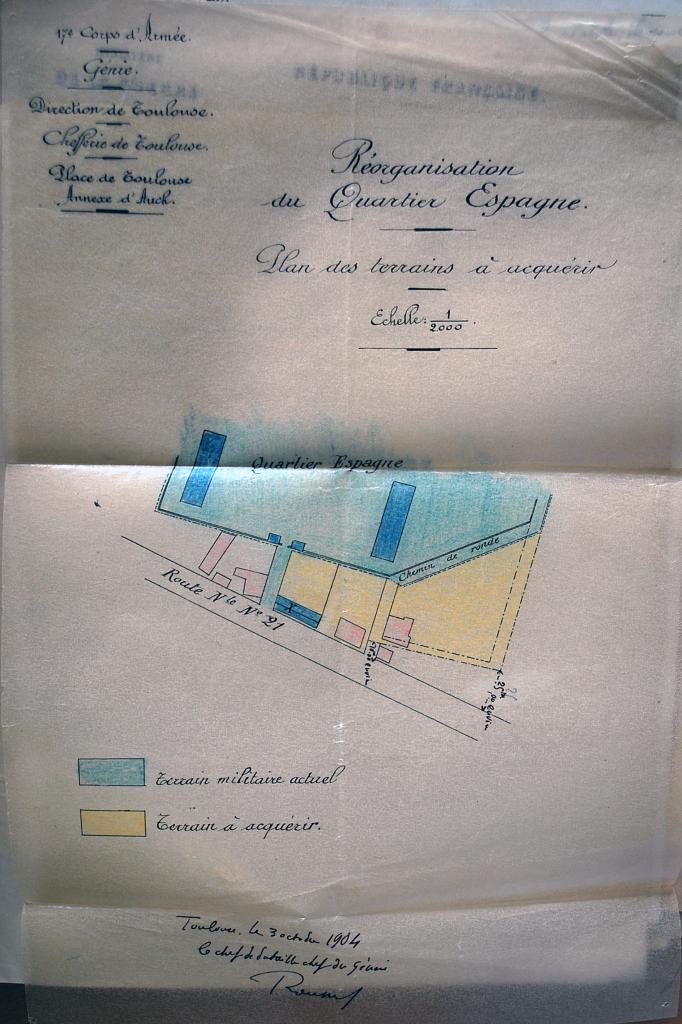 17e Corps d'Armée.
Génie.
Direction de Toulouse.
Chefferie de Toulouse.
Place de Toulouse
Annexe d'Auch.
RÉPUBLIQUE FRANÇAISE.
Réorganisation
du Quartier Espagne.
Plan des terrains à acquérir
Echelle: 1/2.000.
Quartier Espagne
Chemin de ronde
Route Nle No 21
X
Terrain militaire actuel
Terrain à acquérir.
Toulouse, le 3 octobre 1904
le chef de bataillon chef du Génie